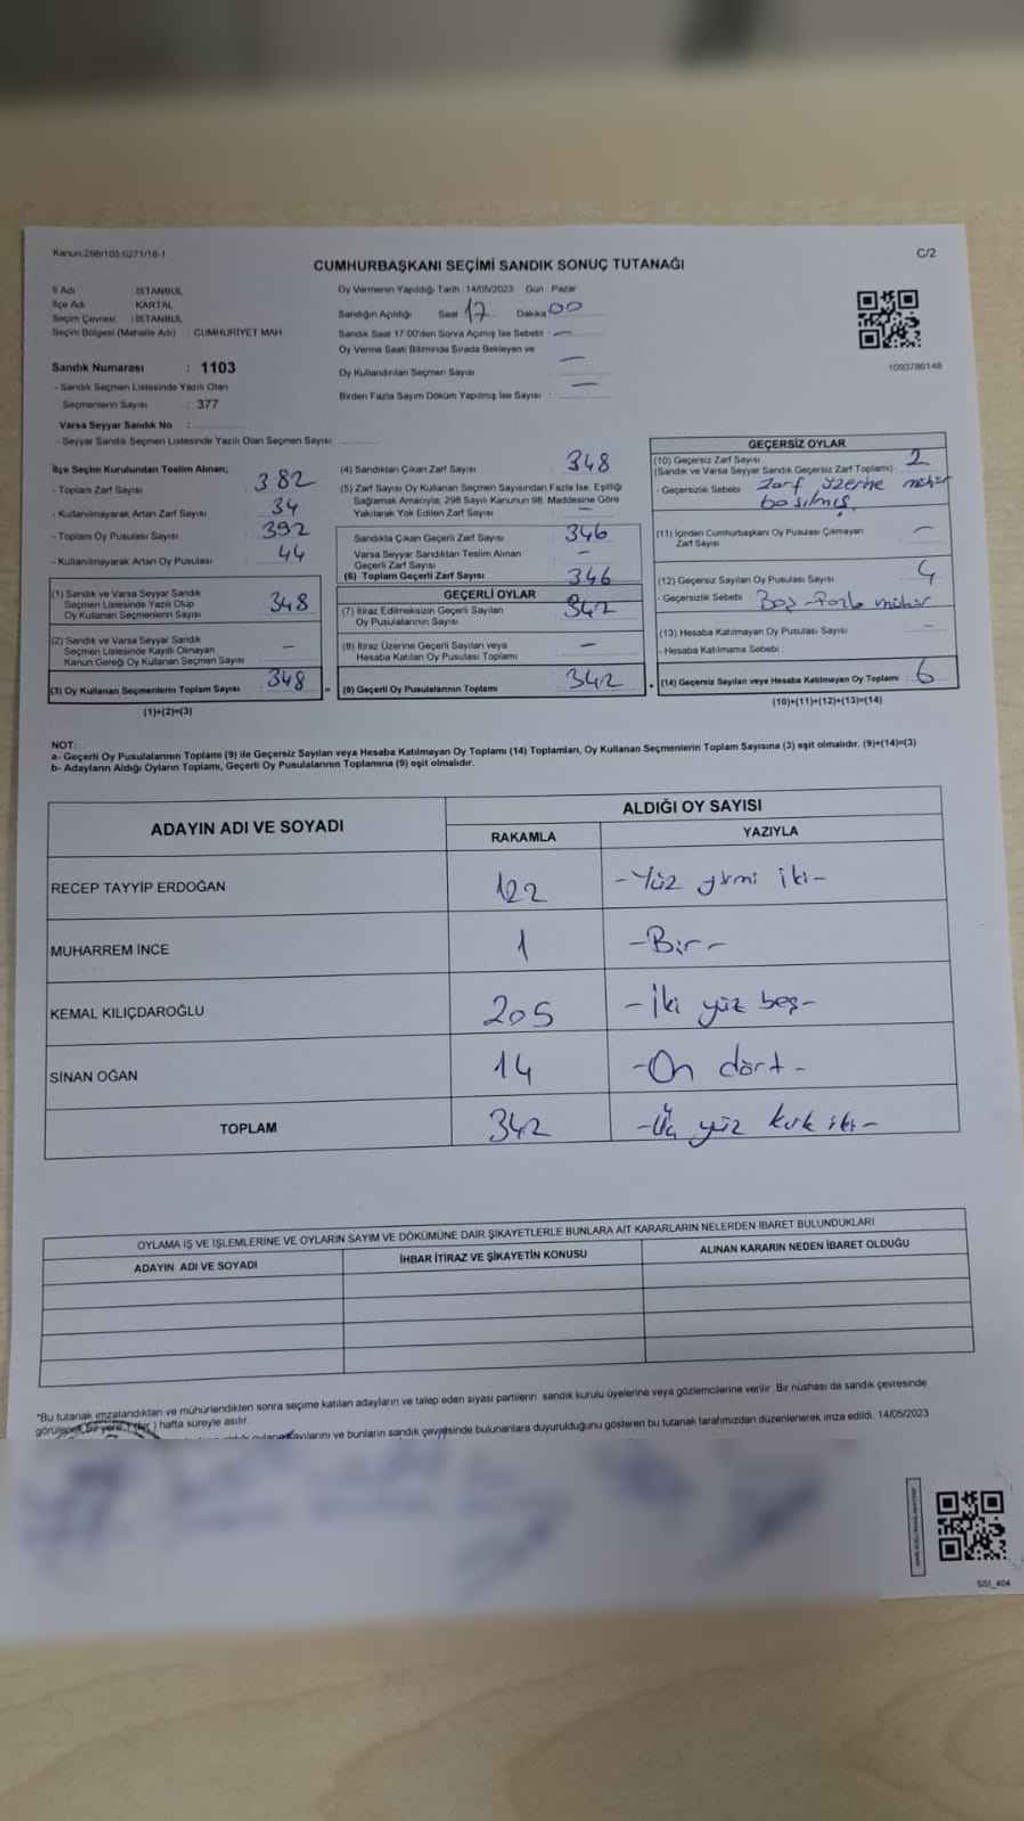 Kanun:298/105;6271/16-1
C/2
CUMHURBAŞKANI SEÇİMİ SANDIK SONUÇ TUTANAĞI
İl Adı : İSTANBUL
İlçe Adı : KARTAL
Seçim Çevresi : İSTANBUL
Seçim Bölgesi (Mahalle Adı) : CUMHURİYET MAH
Sandık Numarası : 1103
- Sandık Seçmen Listesinde Yazılı Olan
Seçmenlerin Sayısı : 377
Varsa Seyyar Sandık No :
- Seyyar Sandık Seçmen Listesinde Yazılı Olan Seçmen Sayısı
Oy Vermenin Yapıldığı Tarih : 14/05/2023 Gün : Pazar
Sandığın Açıldığı Saat 17 Dakika 00
Sandık Saat 17:00'den Sonra Açılmış İse Sebebi : —
Oy Verme Saati Bitiminde Sırada Bekleyen ve
Oy Kullandırılan Seçmen Sayısı —
Birden Fazla Sayım Döküm Yapılmış İse Sayısı : —
1093780148
İlçe Seçim Kurulundan Teslim Alınan;
- Toplam Zarf Sayısı 382
- Kullanılmayarak Artan Zarf Sayısı 34
- Toplam Oy Pusulası Sayısı 392
- Kullanılmayarak Artan Oy Pusulası 44
(1) Sandık ve Varsa Seyyar Sandık
Seçmen Listesinde Yazılı Olup
Oy Kullanan Seçmenlerin Sayısı 348
(2) Sandık ve Varsa Seyyar Sandık
Seçmen Listesinde Kayıtlı Olmayan
Kanun Gereği Oy Kullanan Seçmen Sayısı —
(3) Oy Kullanan Seçmenlerin Toplam Sayısı 348
(1)+(2)=(3)
(4) Sandıktan Çıkan Zarf Sayısı 348
(5) Zarf Sayısı Oy Kullanan Seçmen Sayısından Fazla İse, Eşitliği
Sağlamak Amacıyla, 298 Sayılı Kanunun 98. Maddesine Göre
Yakılarak Yok Edilen Zarf Sayısı —
Sandıkta Çıkan Geçerli Zarf Sayısı 346
Varsa Seyyar Sandıktan Teslim Alınan
Geçerli Zarf Sayısı —
(6) Toplam Geçerli Zarf Sayısı 346
GEÇERLİ OYLAR
(7) İtiraz Edilmeksizin Geçerli Sayılan
Oy Pusulalarının Sayısı 342
(8) İtiraz Üzerine Geçerli Sayılan veya
Hesaba Katılan Oy Pusulası Toplamı —
= (9) Geçerli Oy Pusulalarının Toplamı 342
GEÇERSİZ OYLAR
(10) Geçersiz Zarf Sayısı 2
(Sandık ve Varsa Seyyar Sandık Geçersiz Zarf Toplamı)
- Geçersizlik Sebebi Zarf üzerine mühür
basılmış
(11) İçinden Cumhurbaşkanı Oy Pusulası Çıkmayan
Zarf Sayısı —
(12) Geçersiz Sayılan Oy Pusulası Sayısı 4
- Geçersizlik Sebebi Boş - fazla mühür
(13) Hesaba Katılmayan Oy Pusulası Sayısı —
- Hesaba Katılmama Sebebi :
+ (14) Geçersiz Sayılan veya Hesaba Katılmayan Oy Toplamı 6
(10)+(11)+(12)+(13)=(14)
NOT:
a- Geçerli Oy Pusulalarının Toplamı (9) ile Geçersiz Sayılan veya Hesaba Katılmayan Oy Toplamı (14) Toplamları, Oy Kullanan Seçmenlerin Toplam Sayısına (3) eşit olmalıdır. (9)+(14)=(3)
b- Adayların Aldığı Oyların Toplamı, Geçerli Oy Pusulalarının Toplamına (9) eşit olmalıdır.
ADAYIN ADI VE SOYADI
ALDIĞI OY SAYISI
RAKAMLA YAZIYLA
RECEP TAYYİP ERDOĞAN 122 - Yüz yirmi iki -
MUHARREM İNCE 1 - Bir -
KEMAL KILIÇDAROĞLU 205 - İki yüz beş -
SİNAN OĞAN 14 - On dört -
TOPLAM 342 - Üç yüz kırk iki -
OYLAMA İŞ VE İŞLEMLERİNE VE OYLARIN SAYIM VE DÖKÜMÜNE DAİR ŞİKAYETLERLE BUNLARA AİT KARARLARIN NELERDEN İBARET BULUNDUKLARI
ADAYIN ADI VE SOYADI İHBAR İTİRAZ VE ŞİKAYETİN KONUSU ALINAN KARARIN NEDEN İBARET OLDUĞU
*Bu tutanak imzalandıktan ve mühürlendikten sonra seçime katılan adayların ve talep eden siyasi partilerin sandık kurulu üyelerine veya gözlemcilerine verilir. Bir nüshası da sandık çevresinde
görülecek bir yere 1 (bir) hafta süreyle asılır.
ve bunların sandık çevresinde bulunanlara duyurulduğunu gösteren bu tutanak tarafımızdan düzenlenerek imza edildi. 14/05/2023
SSI_404